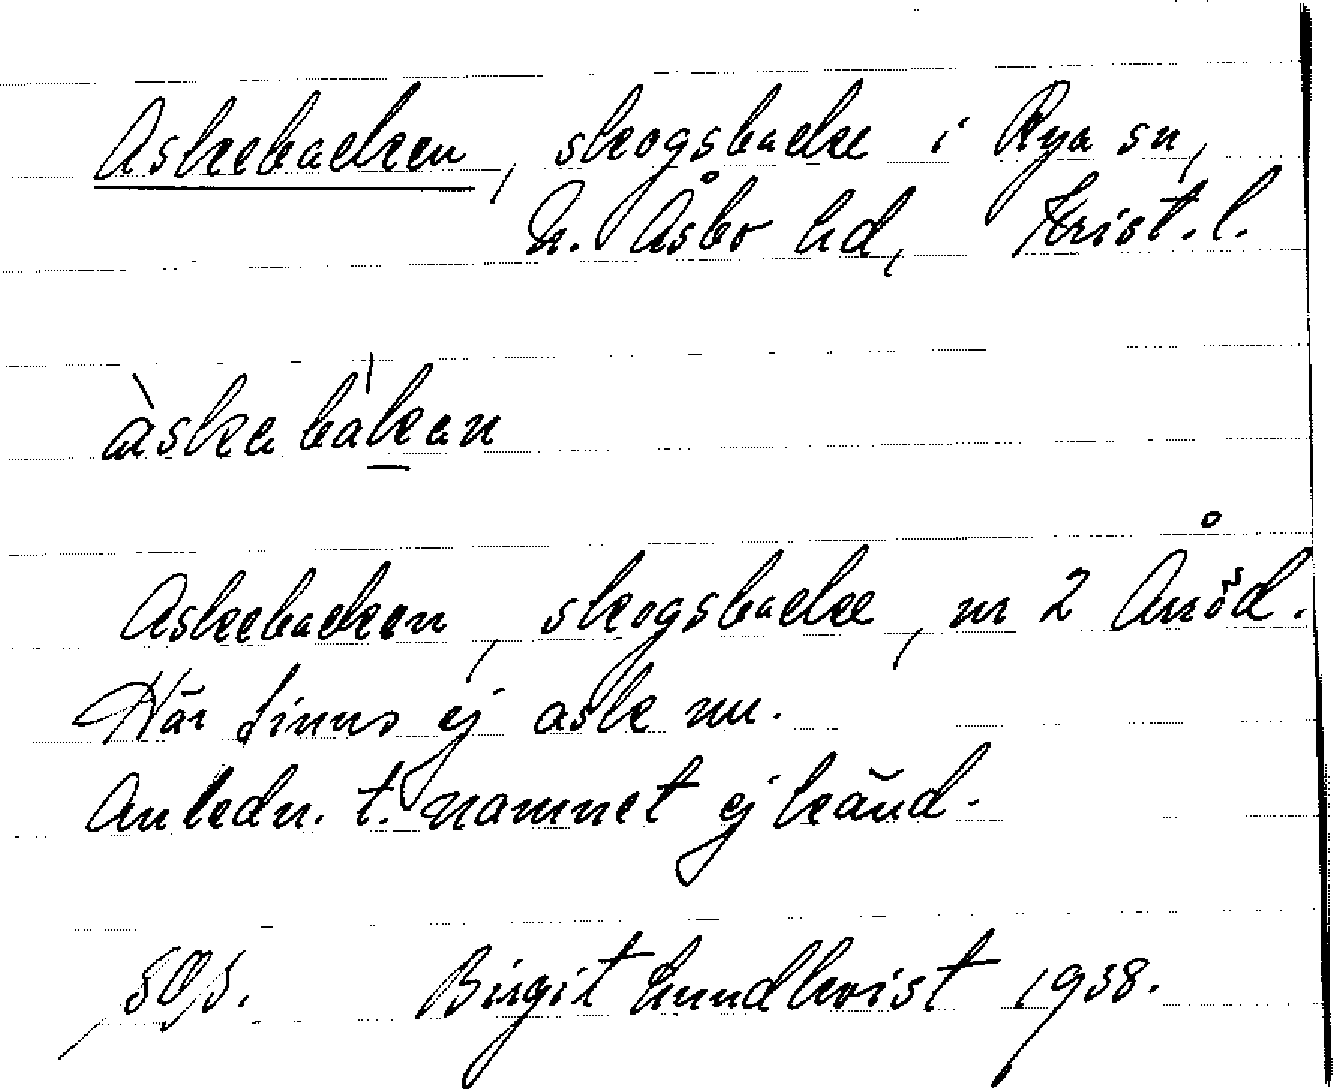 Askebacken, skogsbacke i Rya sn,
N. Åsbo hd, Krist. l.
àskebakan
Askebacken, skogsbacke, nr 2 Åröd.
Här finns ej ask nu.
Anledn. t. namnet ej känd.
Birgit Lundkvist 1938.